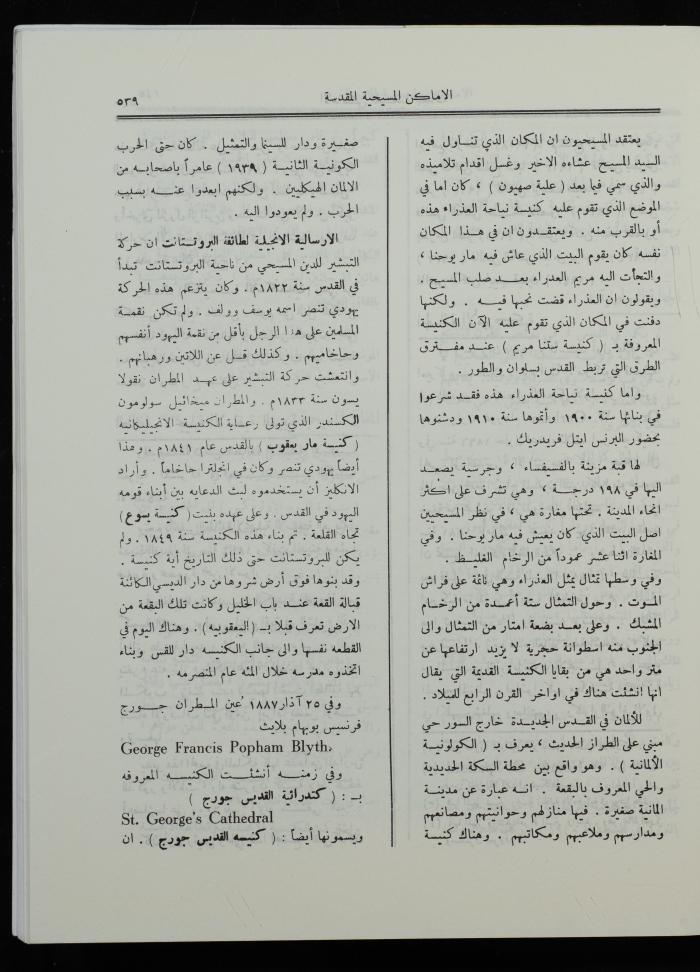 الاماكن المسيحية المقدسة
٥٣٩
يعتقد المسيحيون ان المكان الذي تناول فيه
السيد المسيح عشاءه الاخير وغسل اقدام تلاميذه
والذي سمي فيما بعد ( علية صهيون ) ، كان اما في
الموضع الذي تقوم عليه كنيسة نياحة العذراء هذه
أو بالقرب منه . ويعتقدون ان في هذا المكان
نفسه كان يقوم البيت الذي عاش فيه مار يوحنا ،
والتجأت اليه مريم العذراء بعد صلب المسيح .
ويقولون ان العذراء قضت نحبها فيه . ولكنها
دفنت في المكان الذي تقوم عليه الآن الكنيسة
المعروفة بـ ( كنيسة ستنا مريم ) عند مفترق
الطرق التي تربط القدس بسلوان والطور .
واما كنيسة نياحة العذراء هذه فقد شرعوا
في بنائها سنة ١٩٠٠ وأتموها سنة ١٩١٠ ودشنوها
بحضور البرنس ايتل فريدريك .
لها قبة مزينة بالفسيفساء ، وجرسية يصعد
اليها في ١٩٨ درجة ، وهي تشرف على اكثر
انحاء المدينة . تحتها مغارة هي ، في نظر المسيحيين
اصل البيت الذي كان يعيش فيه مار يوحنا . وفي
المغارة اثنا عشر عموداً من الرخام الغليظ .
وفي وسطها تمثال يمثل العذراء وهي نائمة على فراش
الموت . وحول التمثال ستة أعمدة من الرخام
المشبك . وعلى بعد بضعة امتار من التمثال والى
الجنوب منه اسطوانة حجرية لا يزيد ارتفاعها عن
متر واحد هي من بقايا الكنيسة القديمة التي يقال
انها انشئت هناك في اواخر القرن الرابع للميلاد .
للألمان في القدس الجديدة خارج السور حي
مبني على الطراز الحديث ، يعرف بـ ( الكولونية
الألمانية ) . وهو واقع بين محطة السكة الحديدية
والحي المعروف بالبقعة . انه عبارة عن مدينة
المانية صغيرة . فيها منازلهم وحوانيتهم ومصانعهم
ومدارسهم وملاعبهم ومكاتبهم . وهناك كنيسة
صغيرة ودار للسينما والتمثيل . كان حتى الحرب
الكونية الثانية ( ١٩٣٩ ) عامراً باصحابه من
الالمان الهيكليين . ولكنهم ابعدوا عنه بسبب
الحرب . ولم يعودوا اليه .
الارسالية الانجيلية لطائفة البروتستانت ان حركة
التبشير للدين المسيحي من ناحية البروتستانت تبدأ
في القدس سنة ١٨٢٢م . وكان يتزعم هذه الحركة
يهودي تنصر اسمه يوسف وولف . ولم تكن نقمة
المسلمين على هذا الرجل بأقل من نقمة اليهود أنفسهم
وحاخاميهم . وكذلك قل عن اللاتين ورهبانهم .
وانتعشت حركة التبشير على عهد المطران نقولا
يسون سنة ١٨٣٣م . والمطران ميخائيل سولومون
الكسندر الذي تولى رعاية الكنيسة الانجيليكانيه
(كنيسة مار يعقوب) بالقدس عام ١٨٤١م . وهذا
أيضاً يهودي تنصر وكان في انجلترا حاخاماً . وأراد
الانكليز أن يستخدموه لبث الدعايه بين أبناء قومه
اليهود في القدس . وعلى عهده بنيت (كنيسة يسوع)
تجاه القلعة . تم بناء هذه الكنيسة سنة ١٨٤٩ . ولم
يكن للبروتستانت حتى ذلك التاريخ أية كنيسة .
وقد بنوها فوق أرض شروها من دار الديسي الكائنة
قبالة القعة عند باب الخليل وكانت تلك البقعة من
الارض تعرف قبلا بـ (اليعقوبيه) . وهناك اليوم في
القطعه نفسها والى جانب الكنيسه دار للقس وبناء
اتخذوه مدرسه خلال المئه عام المنصرمه .
وفي ٢٥ آذار ١٨٨٧ عُين المطران جورج
فرنسيس بوبهام بلايث
George Francis Popham Blyth،
وفي زمنه أنشئت الكنيسه المعروفه
بـ : ( كتدرائية القديس جورج )
St. George's Cathedral
ويسمونها أيضاً : ( كنيسه القديس جورج ) . ان